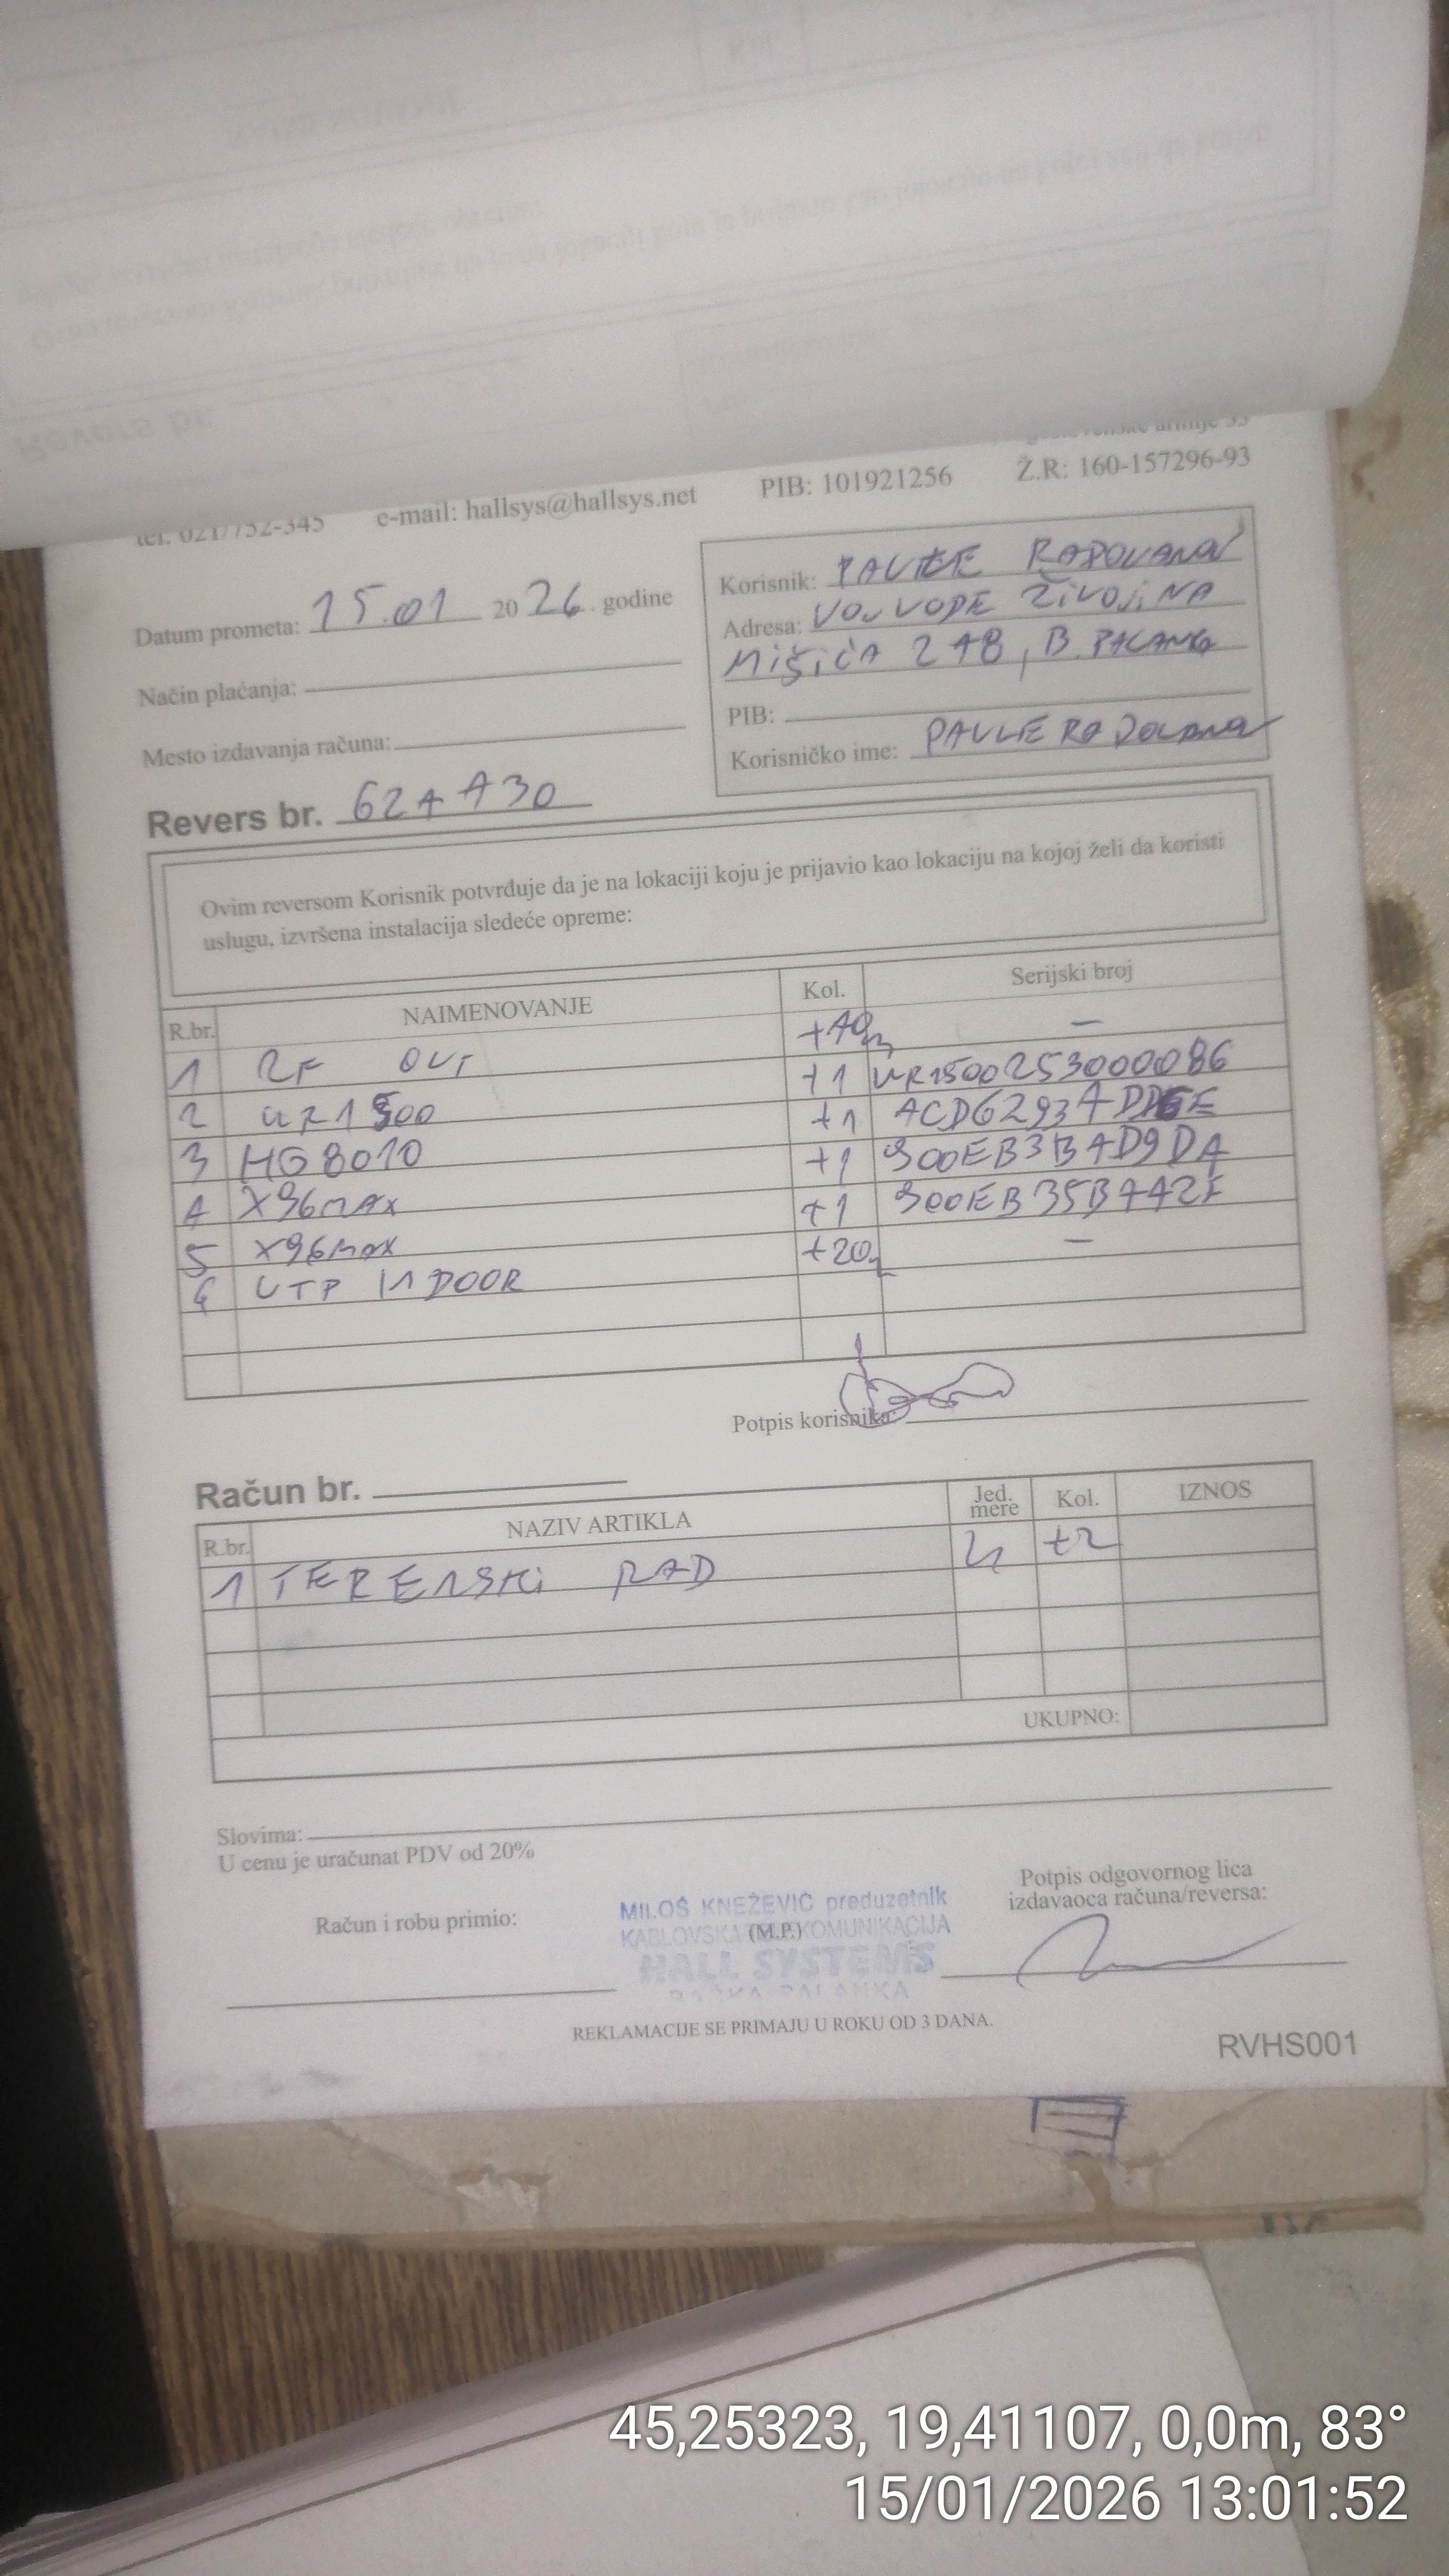 tel: 021/752-345 e-mail: hallsys@hallsys.net PIB: 101921256 Ž.R: 160-157296-93
Datum prometa: 15.01 2026. godine
Korisnik: PAVLE RADOVANA
Adresa: VOJVODE ŽIVOJINA
MIŠIĆA 248, B. PALANKA
Način plaćanja:
PIB:
Mesto izdavanja računa:
Korisničko ime: PAVLERADOVANA
Revers br. 624430
Ovim reversom Korisnik potvrđuje da je na lokaciji koju je prijavio kao lokaciju na kojoj želi da koristi
uslugu, izvršena instalacija sledeće opreme:
R.br. NAIMENOVANJE Kol. Serijski broj
1 OUT +40m –
2 WR1500 +1 WR1500253000086
3 HG8010 +1
4 X96MAX +1 900EB3B4D9DA
5 X96MAX +1 900EB35B442F
6 UTP INDOOR +20m –
Potpis korisnika:
Račun br.
R.br. NAZIV ARTIKLA Jed. mere Kol. IZNOS
1 TERENSKI RAD +2
UKUPNO:
Slovima:
U cenu je uračunat PDV od 20%
Potpis odgovornog lica
izdavaoca računa/reversa:
Račun i robu primio:
MILOŠ KNEŽEVIĆ preduzetnik
KABLOVSKA KOMUNIKACIJA
(M.P.)
HALL SYSTEMS
BAČKA PALANKA
REKLAMACIJE SE PRIMAJU U ROKU OD 3 DANA.
RVHS001
45,25323, 19,41107, 0,0m, 83°
15/01/2026 13:01:52